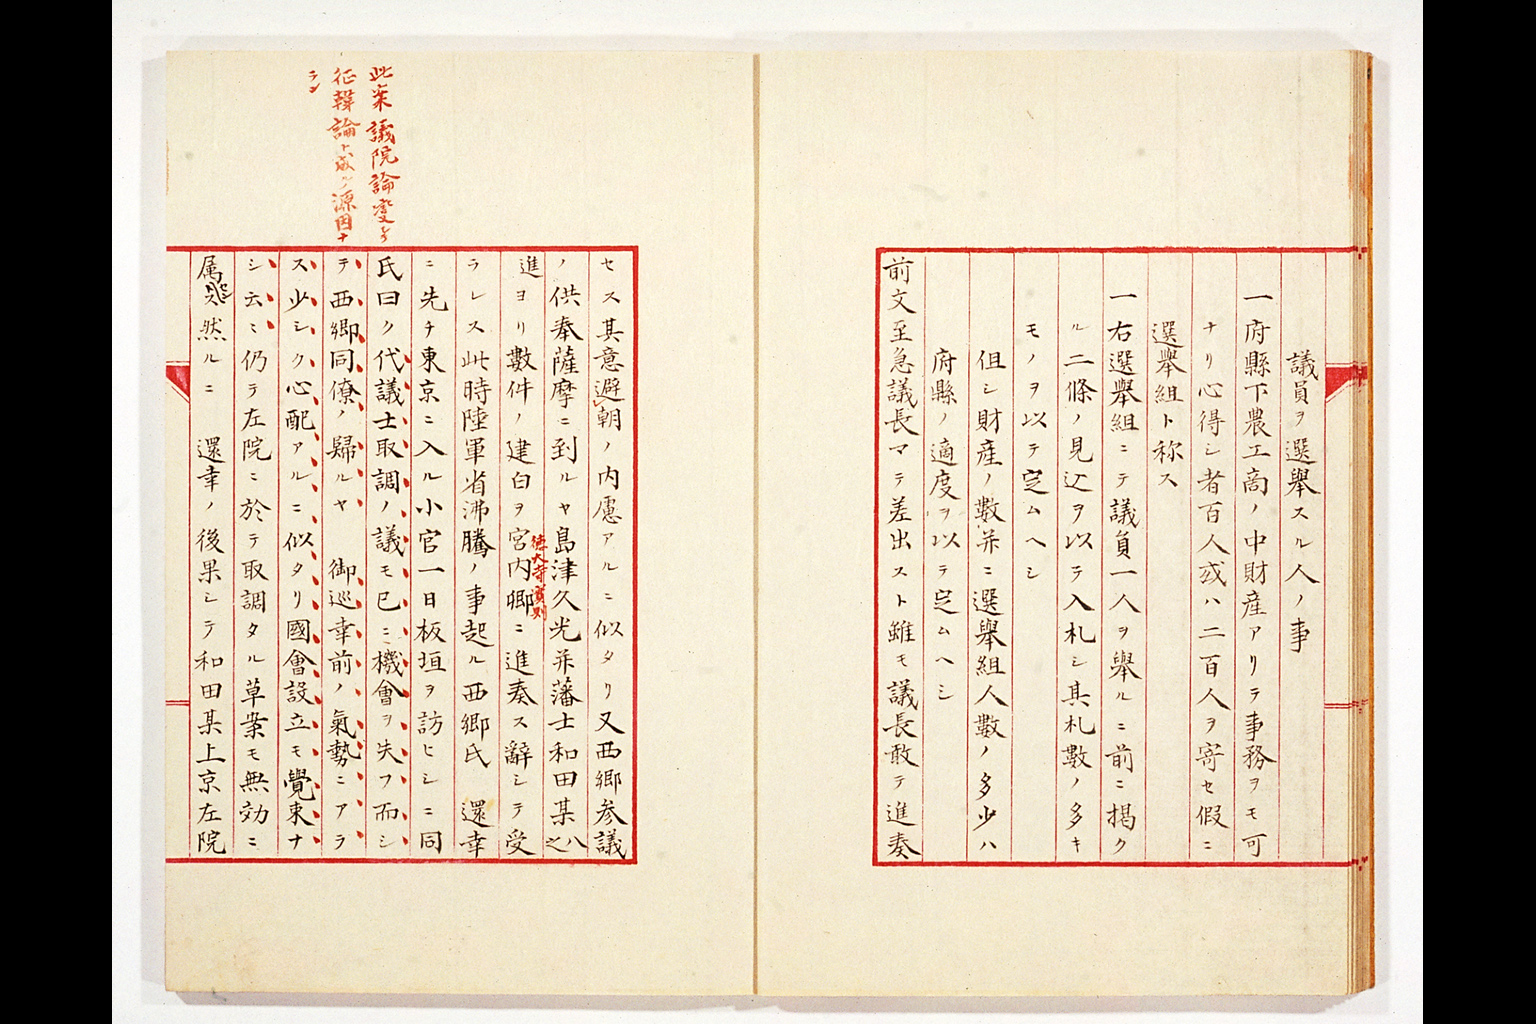 議員ヲ選擧スル人ノ事
一府縣下農工商ノ中財産アリテ事務ヲモ可
ナリ心得シ者百人或ハ二百人ヲ寄セ假ニ
選擧組ト称ス
一右選擧組ニテ議員一人ヲ擧ルニ前ニ掲ク
ル二條ノ見込ヲ以テ入札シ其札數ノ多キ
モノヲ以テ定ムヘシ
但シ財産ノ數并ニ選擧組人數ノ多少ハ
府縣ノ適度ヲ以テ定ムヘシ
前文至急議長マテ差出スト雖モ議長敢テ進奏
セス其意避朝ノ内慮アルニ似タリ又西郷参議
ノ供奉薩摩ニ到ルヤ島津久光并藩士和田某八之
進ヨリ數件ノ建白ヲ宮内卿ニ進奏ス辭シテ受
徳大寺實則
ラレス此時陸軍省沸騰ノ事起ル西郷氏 還幸
ニ先チ東京ニ入ル小官一日板垣ヲ訪ヒシニ同
氏曰ク代議士取調ノ議モ已ニ機會ヲ失フ而シ
テ西郷同僚ノ歸ルヤ 御巡幸前ノ氣勢ニアラ
ス少シク心配アルニ似タリ國會設立モ覺束ナ
シ云ニ仍テ左院ニ於テ取調タル草案モ無効ニ
属ス然ルニ 還幸ノ後果シテ和田某上京左院
此案議院論変シ
征韓論ト成ル源因ナ
ラン